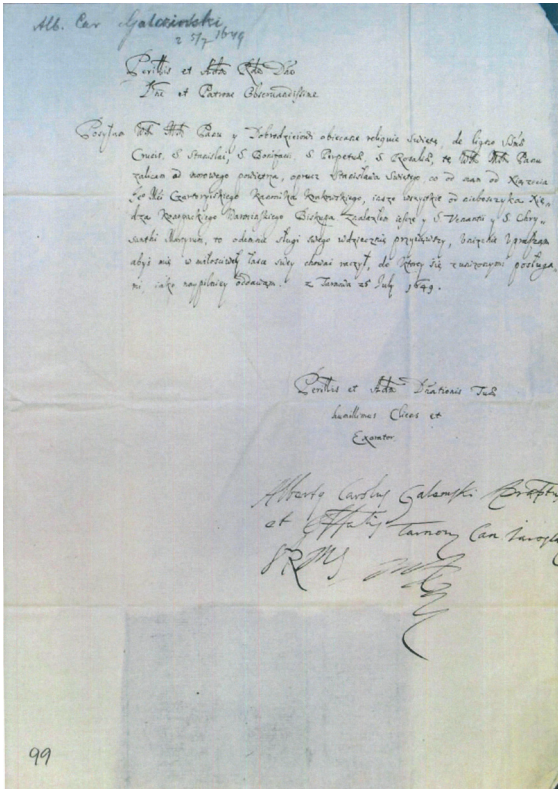 Alb. Car Galemowski
z 5/7 1649
Perillis et Adm Rde Dne
Dne et Patrone Observandissime.
Posyłam Wm Mm Panu y Dobrodziejowi obiecane reliquie święte, de ligno Snt
Crucis, S Stanislai, S Bonifacii, S Perpetuae, S Rosaliae, te Wm Mm Panu
zalecam od morowego powietrza, oprocz Stanisława Swiętego co od mam od Xiążęcia
Je Mci Czartoryiskiego Kanonika Krakowskiego, insze wszystkie od nieboszczyka Xię„
dza Biskupa ieszcze y S Venantii y S Chry„
santhi Martyrum, to odemnie sługi swego wdzięcznie przyiąwszy, Vniżenie Vpraszam
abyś mię w miłościwey łasce swey chować raczył, do ktorey się z vniżonymi posługa
mi iako naypilniey oddawam. z Tarnowa 25 July 1649.
Perillis et Adm Dnationis Tuae
humillimus Cliens et
Exorator
Albertus Carolus Galemski Praeptus
et Offlis Tarnoviensis Can Jarosla
SRMS
99